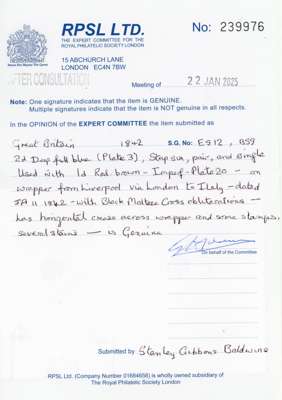 RPSL LTD.
THE EXPERT COMMITTEE FOR THE
ROYAL PHILATELIC SOCIETY LONDON
No: 239976
15 ABCHURCH LANE
LONDON EC4N 7BW
AFTER CONSULTATION
Meeting of 22 JAN 2025
Note: One signature indicates that the item is GENUINE.
Multiple signatures indicate that the item is NOT genuine in all respects.
In the OPINION of the EXPERT COMMITTEE the item submitted as
Great Britain 1842 S.G. No: ES12, BS9
2d Deep full blue (Plate 3), pair, and single
Used with 1d Red-brown - Imperf - Plate 20 - on
wrapper from Liverpool via London to Italy - dated
JA 11 1842 - with Black Maltese Cross obliterations -
has horizontal crease across wrapper and some stamps,
several stains - is Genuine
On behalf of the Committee
Submitted by Stanley Gibbons Baldwins
RPSL Ltd. (Company Number 01684656) is wholly owned subsidiary of
The Royal Philatelic Society London